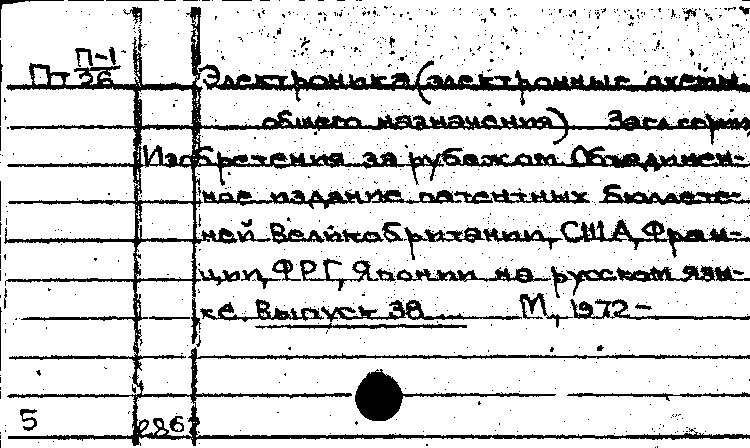 Пт П-1/36 Электроника (электронные схемы
общего назначения) Загл серии
Изобретения за рубежом Объединен-
ное издание патентных бюллете-
ней Великобритании, США, Фран-
ции, ФРГ, Японии на русском язы-
ке. Выпуск 38 ... М., 1972 -
5